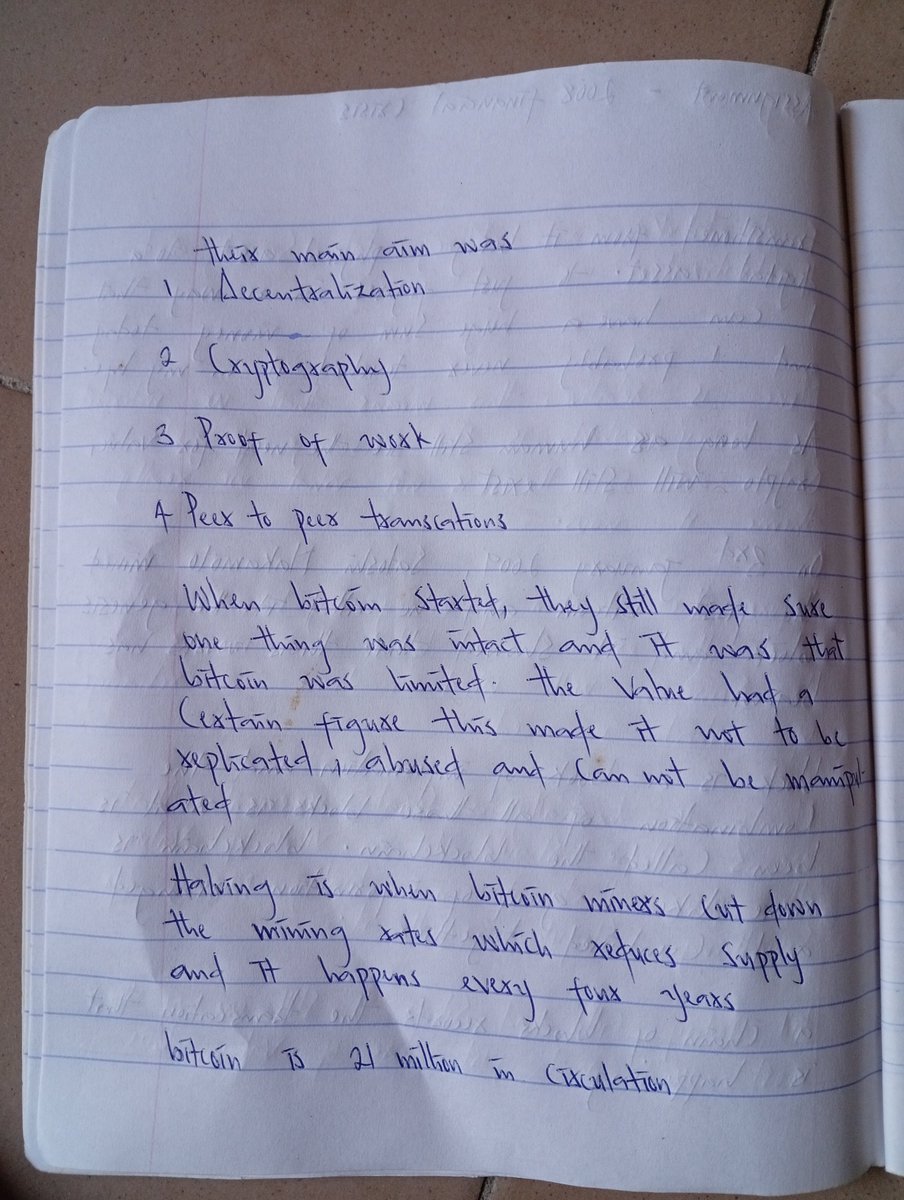 their main aim was
1 Decentralization
2 Cryptography
3 Proof of work
4 Peer to peer transcations
When bitcoin started, they still made sure
one thing was intact and it was that
bitcoin was limited. the value had a
Certain figure this made it not to be
replicated, abused and can not be manipul-
ated
Halving is when bitcoin miners cut down
the mining rates which reduces supply
and it happens every four years
bitcoin is 21 million in circulation